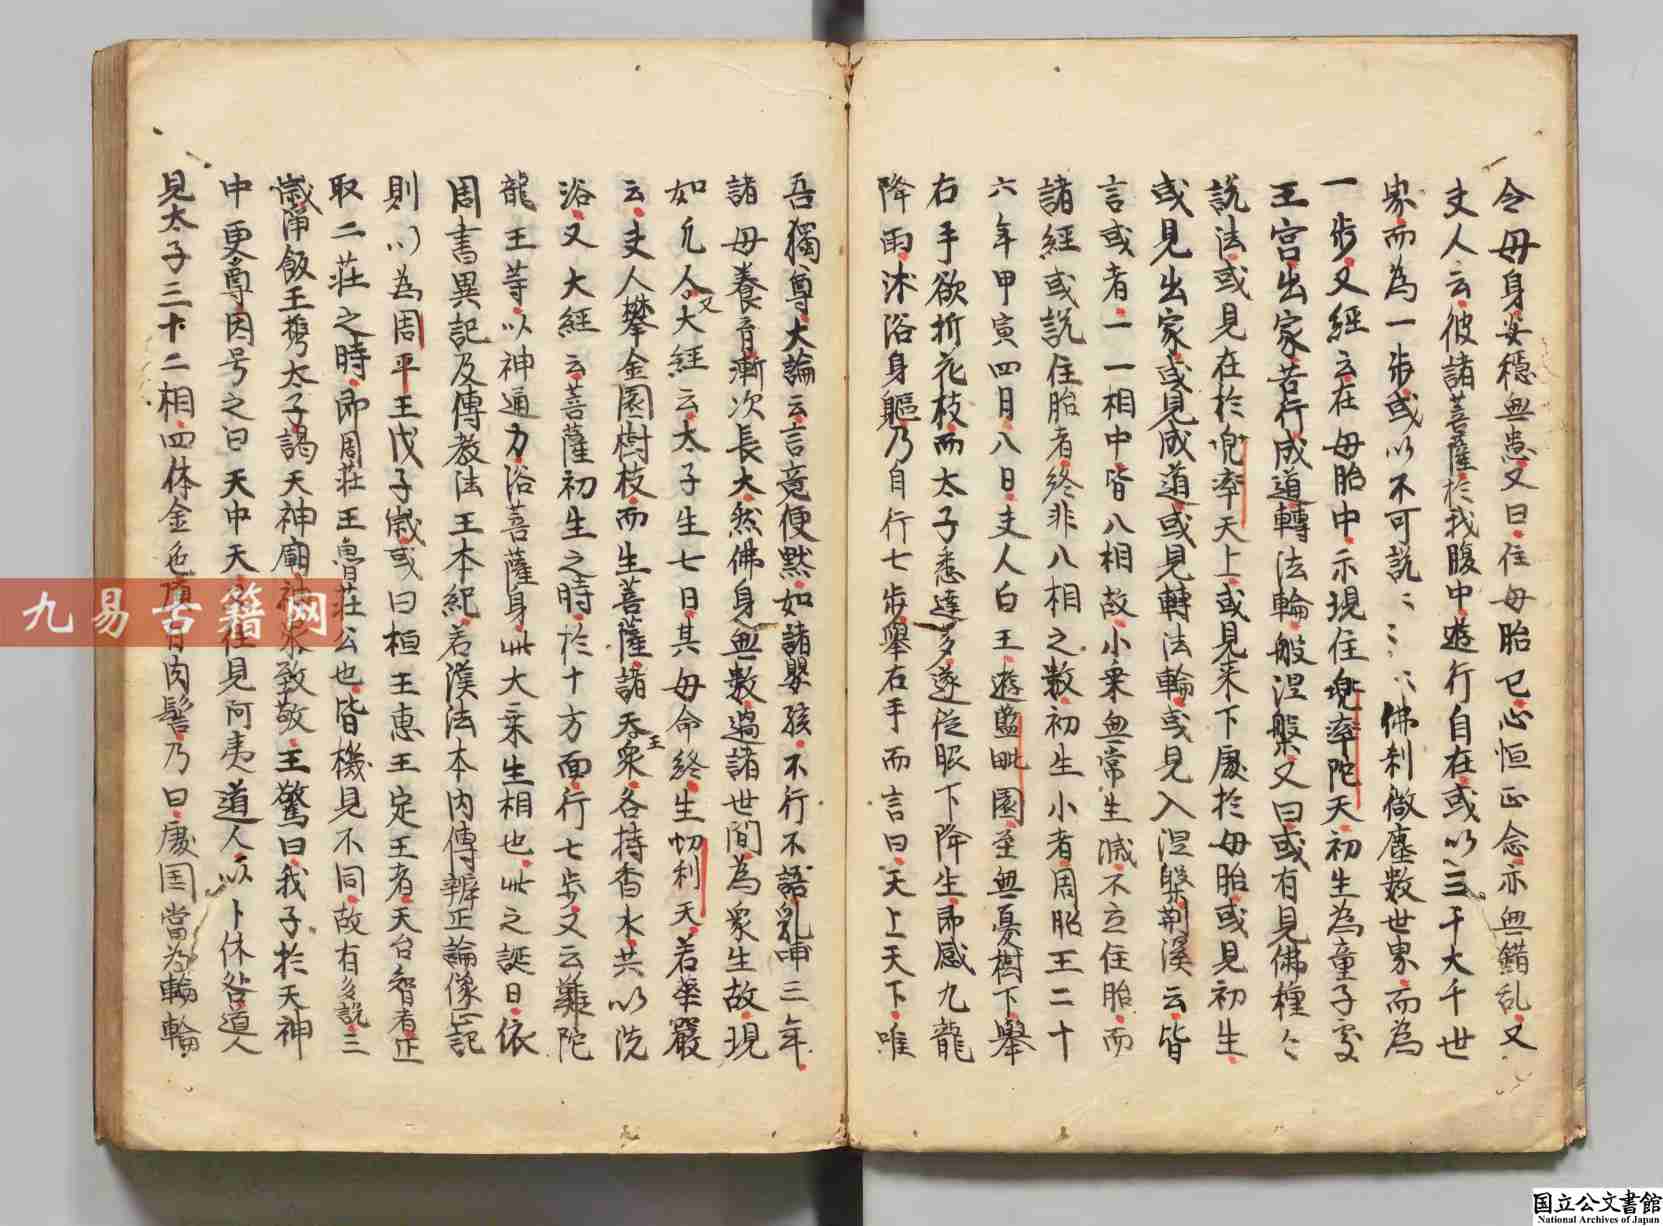 令母身安穩無患又曰住母胎已心恒正念亦無錯乱又
夫人云彼諸菩薩於我腹中遊行自在或以三千大千世
界而為一步或以不可説〻〻〻佛刹微塵数世界而為
一步又経云在母胎中示現住兜率陀天初生為童子処
王宮出家苦行成道轉法輪般涅槃又曰或有見佛種〻
説法或見在於兜率天上或見来下處於母胎或見初生
或見出家或見成道或見轉法輪或見入涅槃荊溪云皆
言或者一一相中皆八相故小乗無常生滅不立住胎而
諸経或説住胎者終非八相之数初生小者周昭王二十
六年甲寅四月八日夫人白王遊藍毗園至無憂樹下舉
右手欲折花枝而太子悉達多遂従脇下降生即感九龍
降雨沐浴身軀乃自行七步舉右手而言曰天上天下唯
吾獨尊大論云言竟便黙如諸嬰孩不行不語乳哺三年
諸母養育漸次長大然佛身無数過諸世間為衆生故現
如凡人又大経云太子生七日其母命終生忉利天若華嚴
云夫人攀金園樹枝而生菩薩諸天王衆各持香水共以洗
浴又大経云菩薩初生之時於十方面行七步又云難陀
龍王等以神通力浴菩薩身此大乗生相也此之誕日依
周書異記及傳教法王本紀若漢法本内傳辨正論像正記
則以為周平王戊子歳或曰桓王惠王定王者天台智者正
取二莊之時即周莊王魯莊公也皆機見不同故有多説三
歳淨飯王携太子謁天神廟神像致敬王驚曰我子於天神
中更尊因号之曰天中天又住見阿夷道人以卜休咎道人
見太子三十二相四体金色頂有肉髻乃曰處国當為輪輪
九易古籍网
国立公文書館
National Archives of Japan